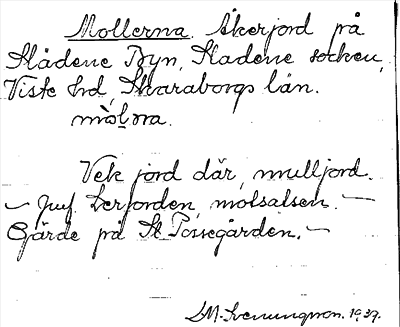 Mollerna. Åkerjord på
Slädene Byn, Slädene socken,
Viste hrd, Skaraborgs län.
mòlṇa.
Vek jord där, mulljord.
— Jmf. Lerjorden, molsalsen. —
Gärde på St. Possegården. —
S.M. Svenungsson. 1939.